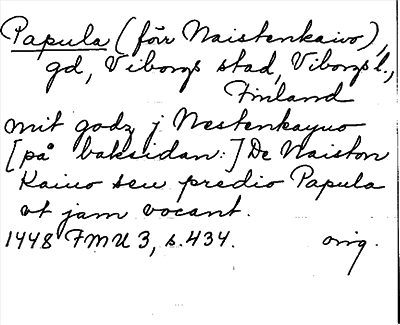 Papula (för Naistenkaivo),
gd, Viborgs stad, Viborgs l.,
Finland
mit godz j Nestenkayuo
[på baksidan:] De Naiston
Kaiuo seu predio Papula
vt jam vocant.
1448 FMU 3, s. 434. orig.